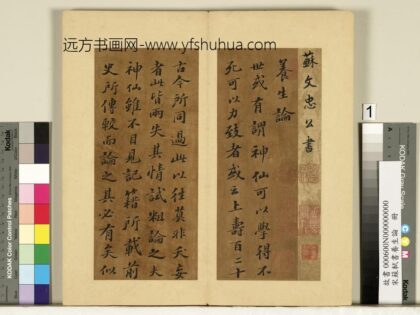 远方书画网-www.yfshuhua.com
蘇文忠公書
養生論
世或有謂神仙可以學得不
死可以力致者或云上壽百二十
古今所同過此以往莫非夭妄
者此皆兩失其情試粗論之夫
神仙雖不目見記籍所載前
史所傳較而論之其必有矣似
1
故書000600N000000000
宋蘇軾書養生論 冊
KODAK Color Control Patches
Kodak